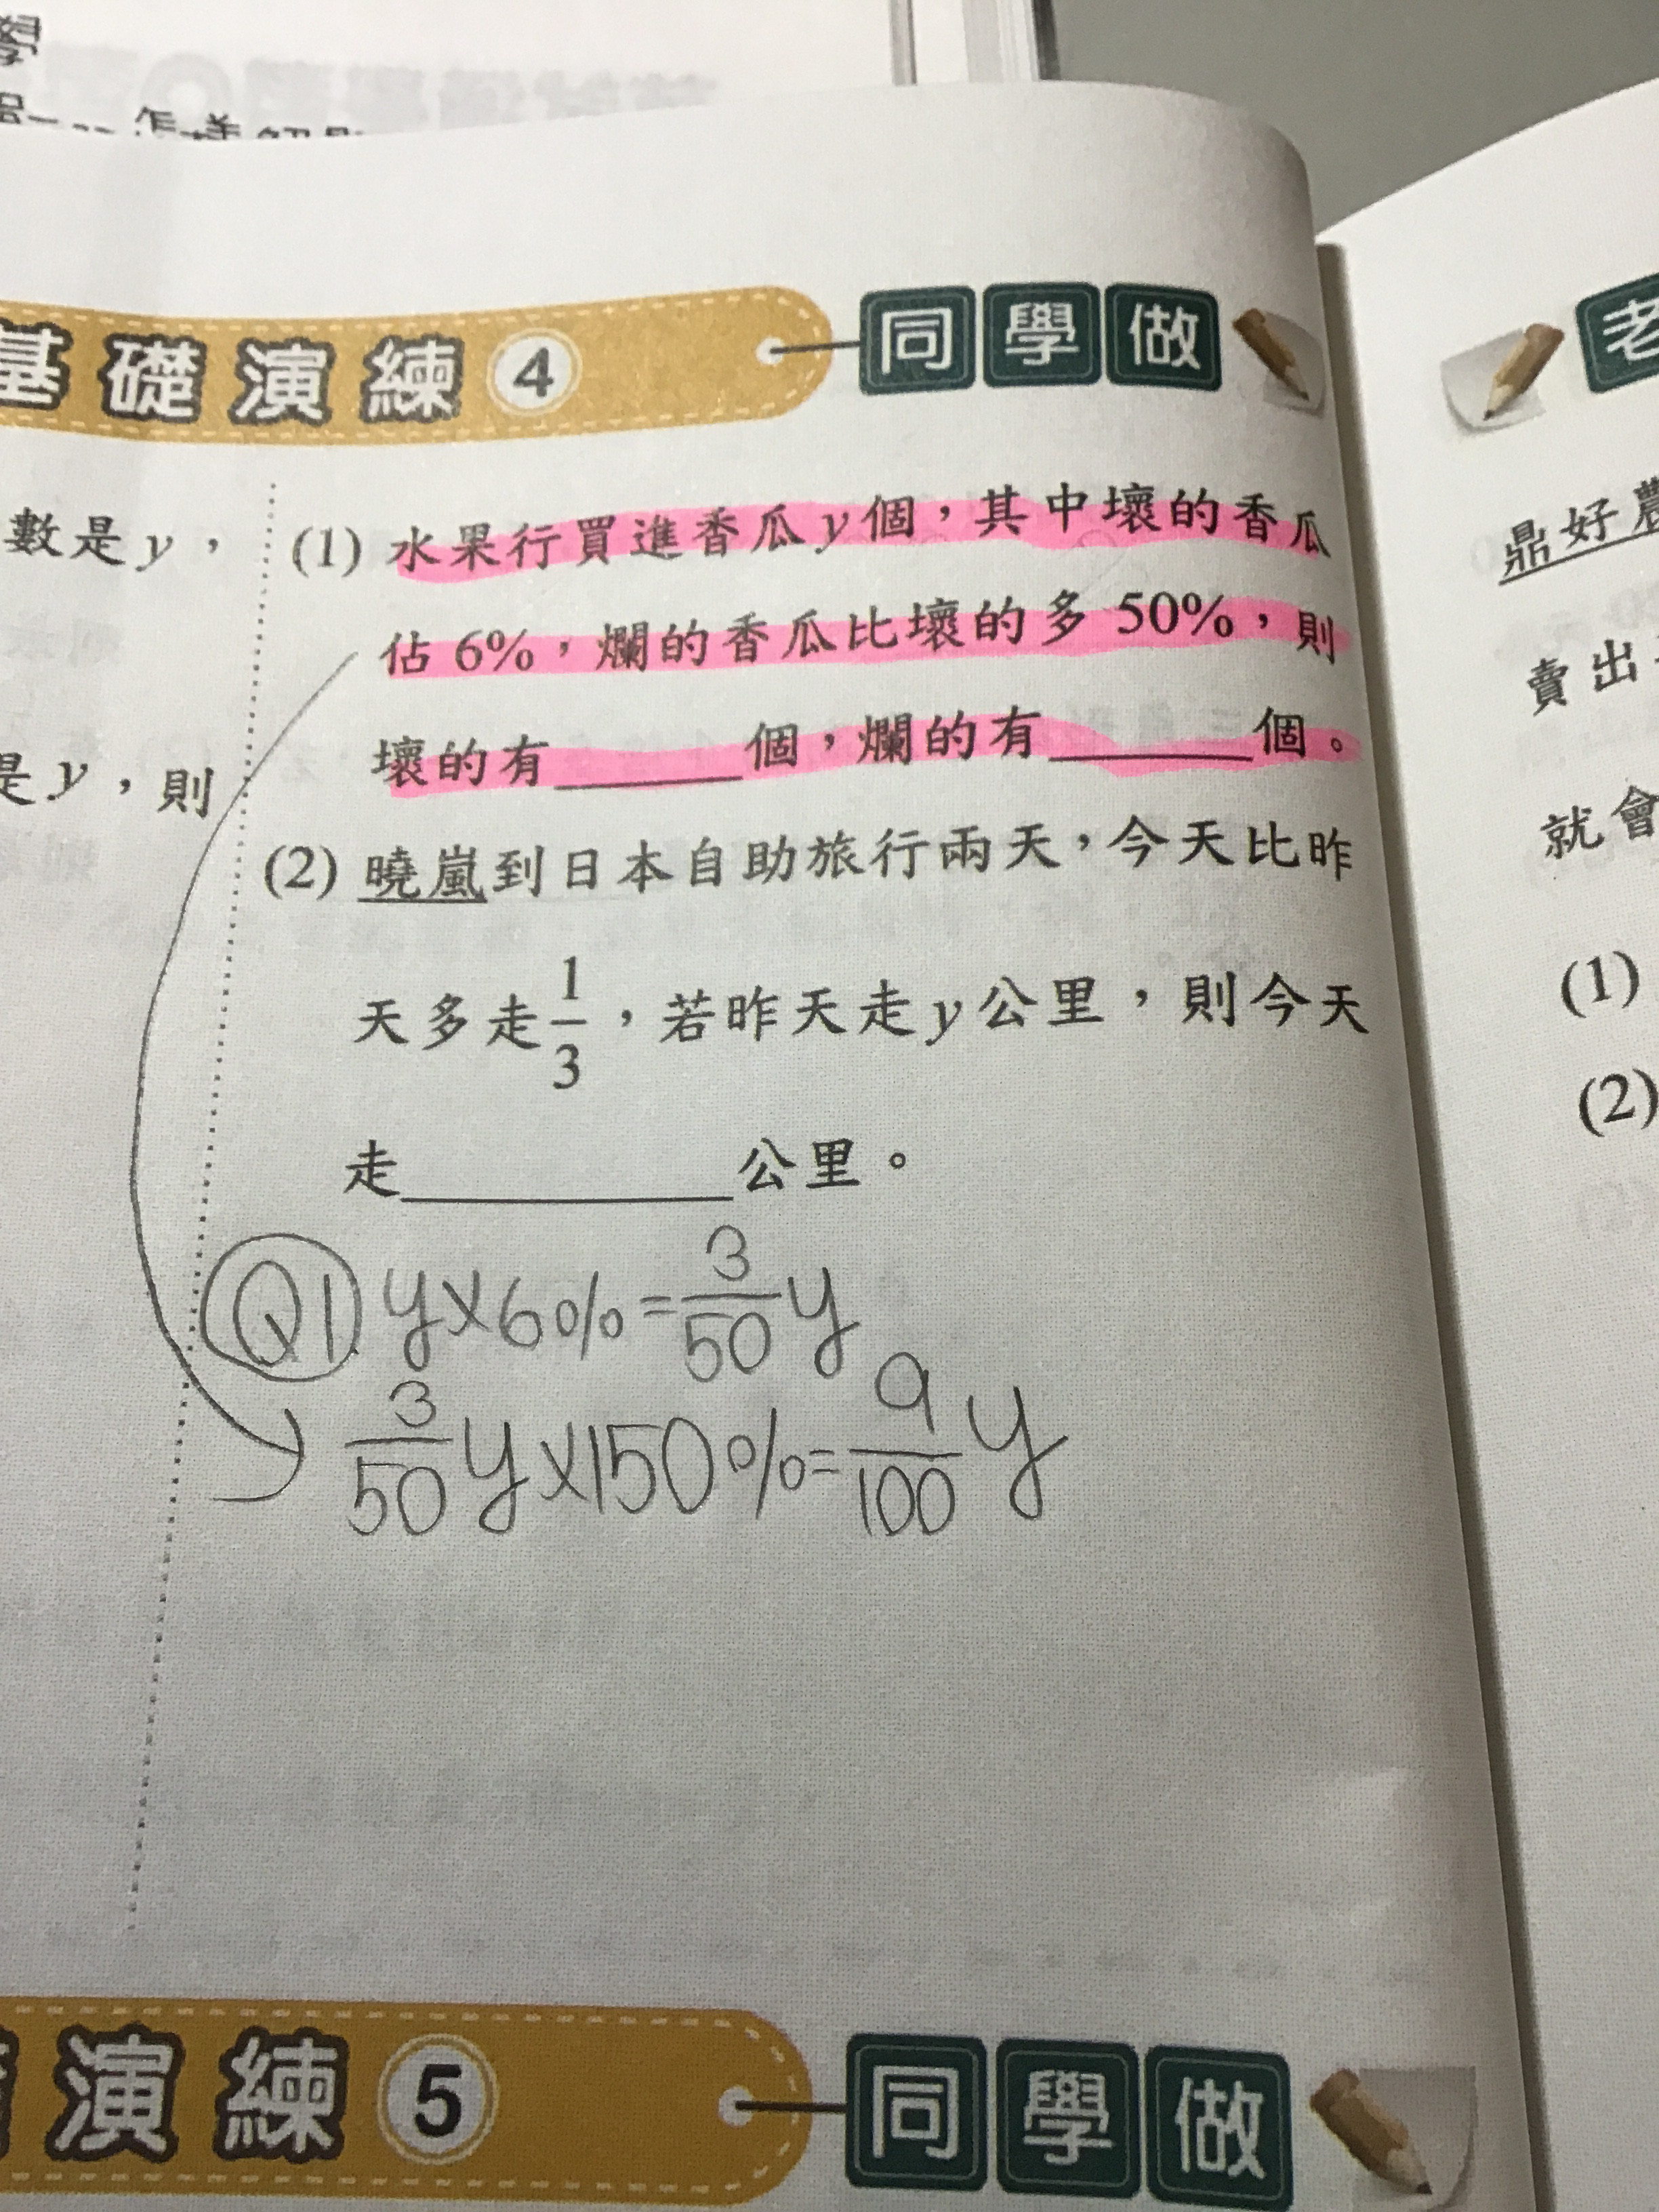 學
怎樣
基礎演練4 同學做
數是y,
是y,則
(1) 水果行買進香瓜y個,其中壞的香瓜
佔6%,爛的香瓜比壞的多50%,則
壞的有______個,爛的有______個。
(2) 曉嵐到日本自助旅行兩天,今天比昨
天多走1/3,若昨天走y公里,則今天
走__________公里。
Q1 y×6%=3/50y
3/50y×150%=9/100y
演練5 同學做
老
鼎好農
賣出
就會
(1)
(2)